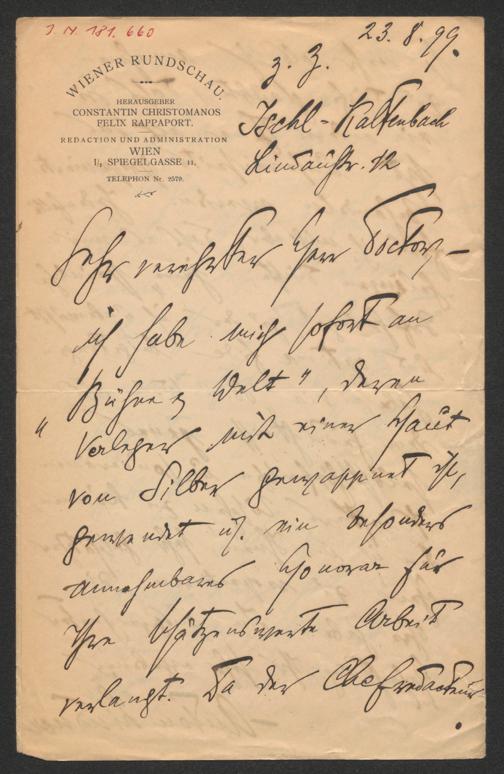 J. N. 181.660
23.8.99.
WIENER RUNDSCHAU.
HERAUSGEBER
CONSTANTIN CHRISTOMANOS
FELIX RAPPAPORT.
REDACTION UND ADMINISTRATION
WIEN
I., SPIEGELGASSE 11.
TELEPHON Nr. 2579.
z. Z.
Ischl-Kaltenbach
Lindaustr. 12
Sehr verehrter Herr Doctor –
ich habe mich sofort an
"Bühne u Welt", deren
Verleger mit einer Haut
von Silber gewappnet ist,
gewendet u. ein besonders
annehmbares Honorar für
Ihre schätzenswerte Arbeit
verlangt. Da der Chefredacteur